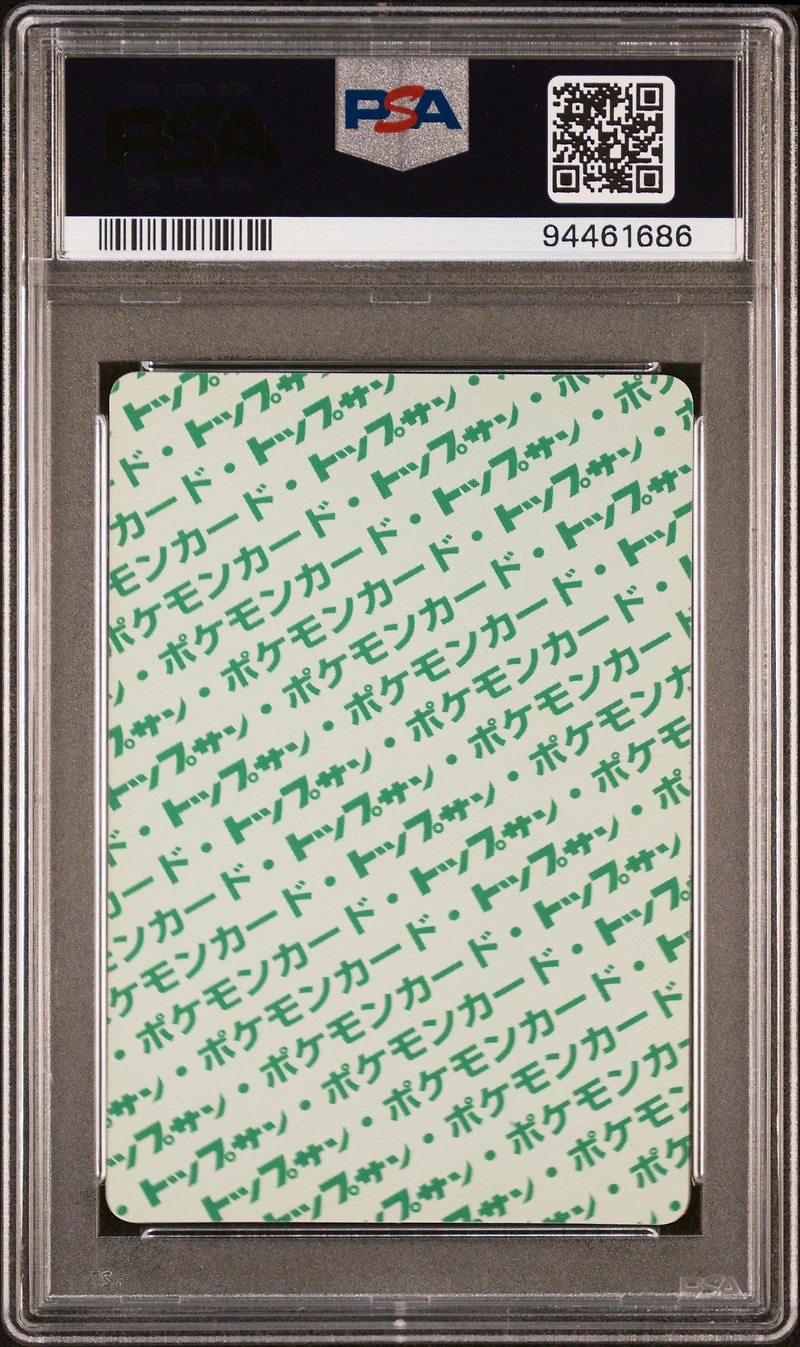 PSA
PSA
94461686
トップサ
ド・トップサ
カード・トップサン
モンカード・トップサン・
ポケモンカード・トップサン・ポ
・ポケモンカード・トップサン・ポケ
ン・ポケモンカード・トップサン・
プサン・ポケモンカード・トップサン
トップサン・ポケモンカード・トッ
ド・トップサン・ポケモンカード・
ード・トップサン・ポケモンカー
ンカード・トップサン・ポケモンカ
ケモンカード・トップサン・ポケモ
・ポケモンカード・トップサン・ポ
サン・ポケモンカード・トップサン
ップサン・ポケモンカード・トップ
トップサン・ポケモンカード・ト
・トップサン・ポケモンカード
トップサン・ポケモンカー
トップサン・ポケモン
プサン・ポケ
サン・
PSA